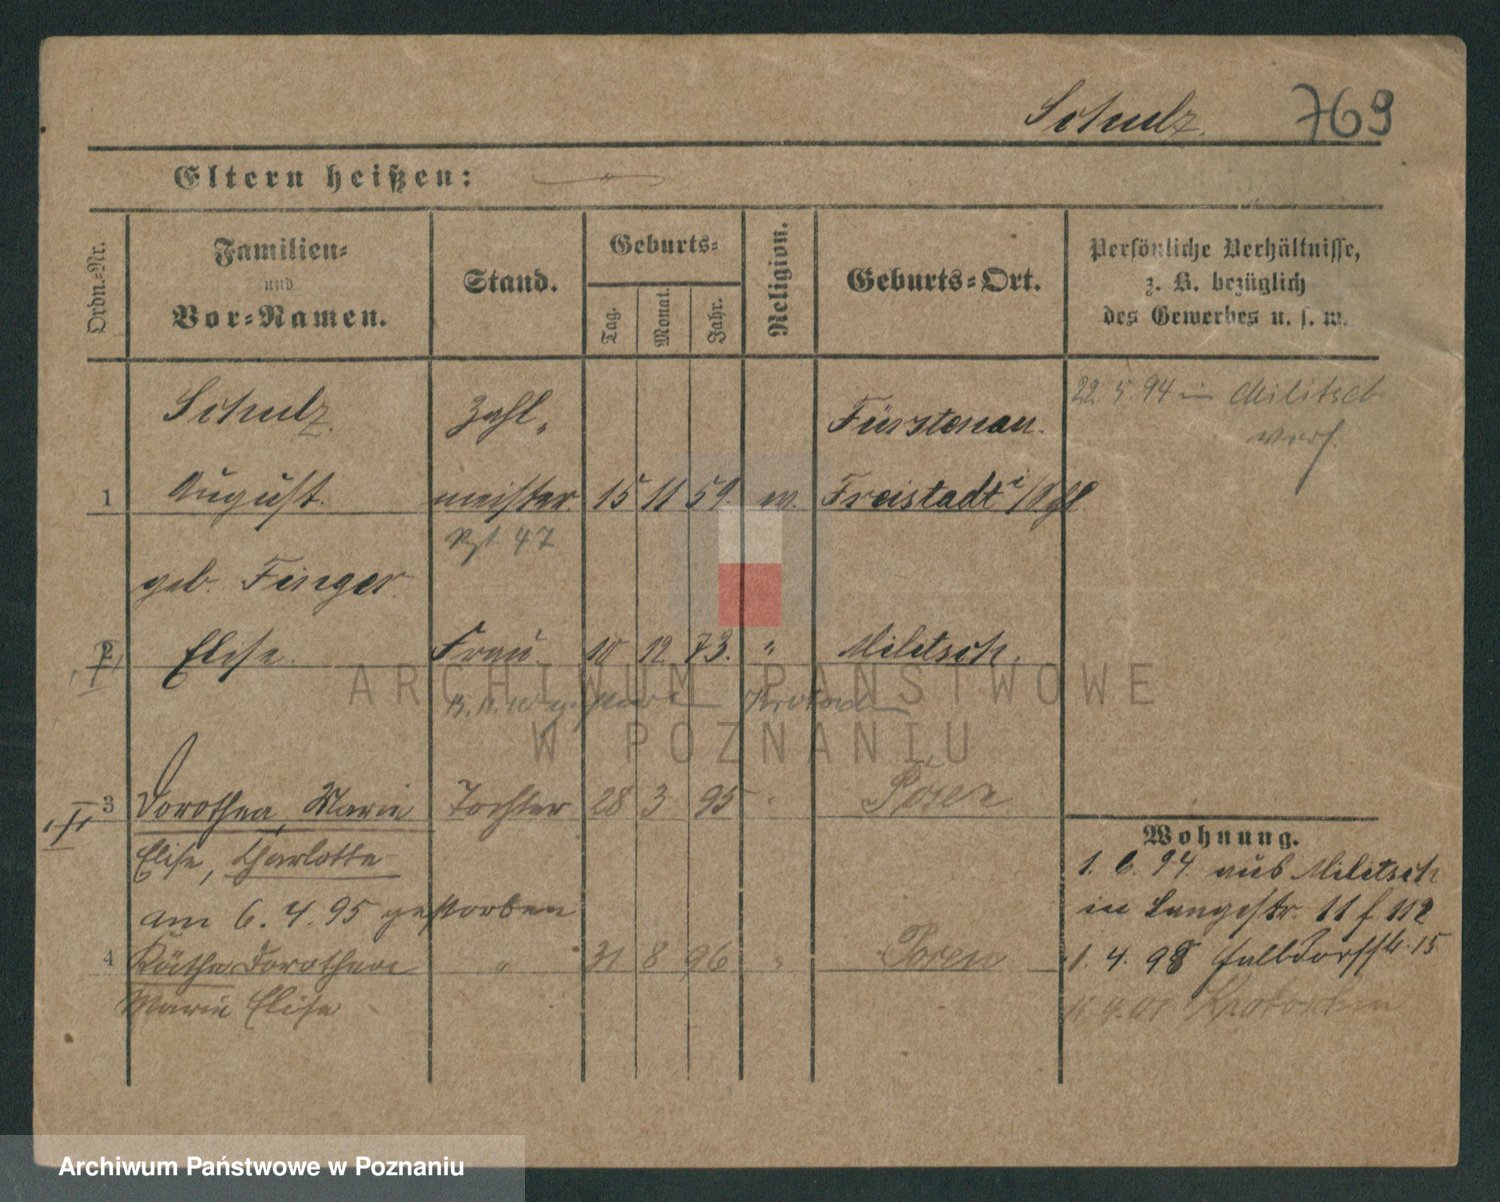 Schulz. 769
Eltern heißen:
Ordn.-Nr.
Familien-
und
Vor-Namen.
Stand.
Geburts-
Tag.
Monat.
Jahr.
Religion.
Geburts-Ort.
Persönliche Verhältnisse,
z. B. bezüglich
des Gewerbes u. s. w.
Schulz. Zahl- Fürstenau. 22. 5. 94 in Militsch
verh.
1 August. meister 15 11 59. ev. Freistadt i/Schl
Rgt 47
geb. Finger.
2 Elise. Frau. 10 12 73. " Militsch.
ARCHIWUM PAŃSTWOWE
W POZNANIU
3 Dorothea, Marie Tochter 28 3 95 " Posen
Elise, Charlotte
am 6. 4. 95 gestorben
4 Käthe Dorothea " 31 8 96 " Posen
Marie Elise
Wohnung.
1. 6. 94. aus Militsch
in Langestr. 11 f 112
1. 4. 98
Krotoschin
Archiwum Państwowe w Poznaniu